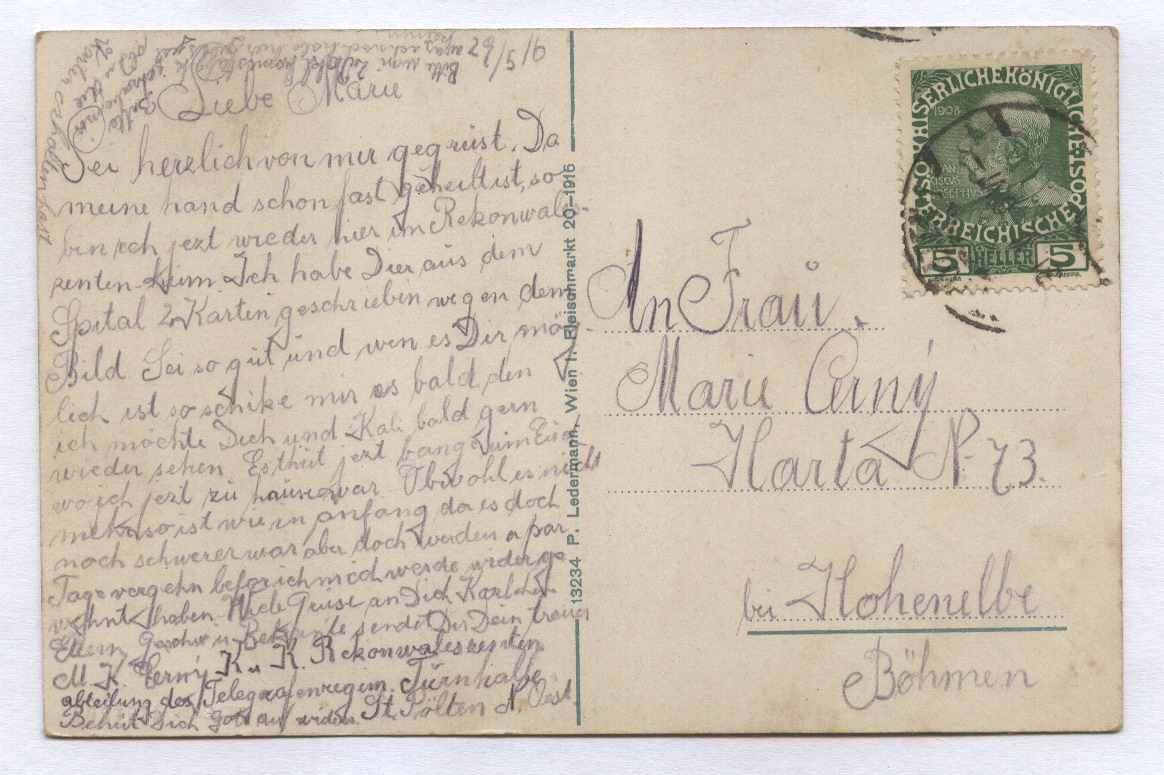 9/5/67
Liebe Marie
Sei herzlich von mir gegrüst. Da
meine hand schon fast geheilt ist, so
bin ich jezt wieder hier im Rekonwales-
zenten-Heim Ich habe Dier aus dem
Spital 2 Karten geschrieben wegen dem
Bild. Sei so gut und wen es Dir mög-
lich ist so schike mir es bald, den
ich möchte Dich und Karli bald gern
wieder sehen. Es thut jezt bang
wo ich jezt zu hause war. Obwohl es nicht
mehr so ist wie in anfang da es doch
noch schwerer war aber doch werden a par
Tage vergehn befor ich mich werde wider ge
wohnt haben. Viele Grüse an Dich Karlchen
Eltern, Geschw u. Bekannte sendet Dir Dein treuer
M. K. Cerný K. u. K. Rekonwaleszenten
abteilung des Telegrafenregim. Türnhalle
Behüt Dich Gott auf widersn St. Pölten N. Oest
13234 P. Ledermann, Wien I. Fleischmarkt 20-1916
KAISERLICHEKÖNIGLICHE
1908
ÖSTERREICHISCHE POST
5 HELLER 5
An Frau.
Marie Cerný
Harta N- 73.
bei Hohenelbe
Böhmen